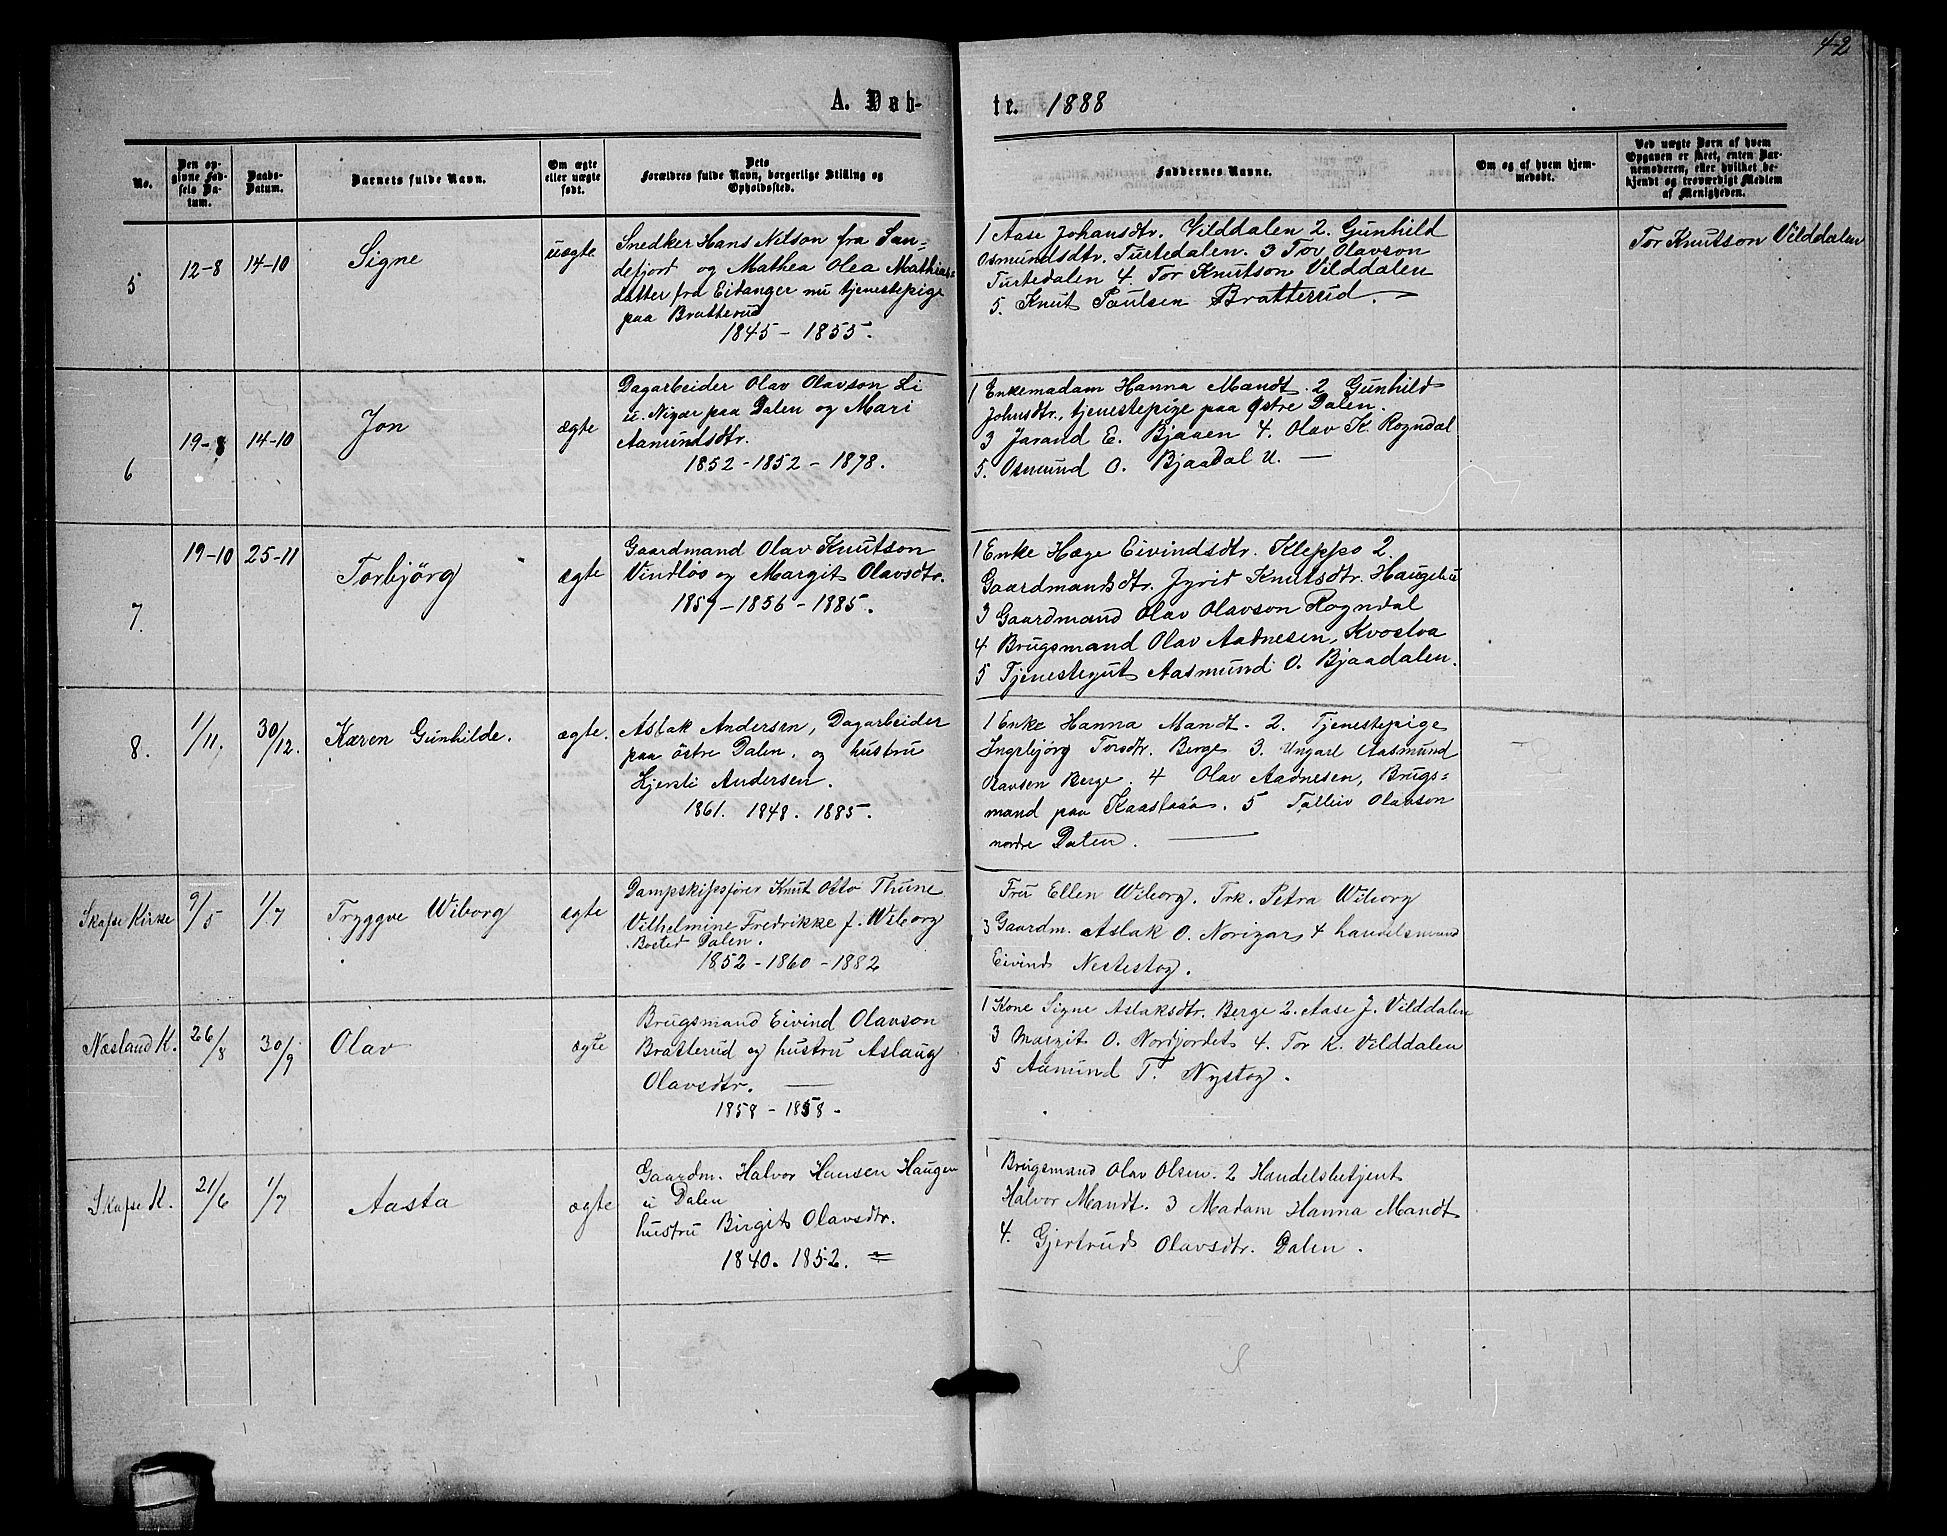 42
A. Døb-
te. 1888
No.
Den op-
givne Fød-
sels Da-
tum.
Daabs-
Datum.
Barnets fulde Navn.
Om ægte
eller uægte
født.
Dets
Forældres fulde Navn, borgerlige Stilling og
Opholdssted.
Faddernes Navne.
Om og af hvem hjem-
medøbt.
Ved uægte Børn af hvem
Opgaven er skeet, enten Bar-
nemoderen, eller hvilket be-
kjendt og troværdigt Medlem
af Menigheden.
5
12-8
14-10
Signe
uægte
Snedker Hans Nilson fra San-
defjord og Mathea Olea Mathias-
datter fra Eidanger nu tjenestepige
paa Bratterud
1845 - 1855.
1 Aase Johansdtr. Vilddalen 2. Gunhild
Osmundsdtr. Turtedalen. 3 Tov Olavson
Turtedalen 4. Tor Knutson Vilddalen
5. Knut Paulsen Bratterud.
Tor Knutson Vilddalen
6
19-8
14-10
Jon
ægte
Dagarbeider Olav Olavson Li
u. Nigar paa Dalen og Mari
Aamundsdtr.
1852 - 1852 - 1878.
1 Enkemadam Hanna Mandt. 2 Gunhild
Johnsdtr., tjenestepige paa Østre Dalen.
3 Jarand E. Bjaaen 4. Olav K. Rogndal
5. Osmund O. Bjaadal u. —
7.
19-10
25-11
Torbjörg
ægte
Gaardmand Olav Knutson
Vindlös og Margit Olavsdtr.
1857 - 1856 - 1885.
1 Enke Hæge Eivindsdtr. Kleppo 2.
Gaardmandsdtr. Jyrid Knutsdtr. Haugebu
3 Gaardmand Olav Olavson Rogndal
4 Brugsmand Olav Aadnesen, Kvostva
5 Tjenestegut Aasmund O. Bjaadalen.
8.
1/11.
30/12.
Karen Gunhilde.
ægte.
Aslak Andersen, Dagarbeider
paa östre Dalen, og hustru
Kjersti Andersen.
1861. 1848. 1885.
1 Enke Hanna Mandt. 2. Tjenestepige
Ingebjørg Torsdtr. Berge 3. Ungarl Aasmund
Olavsen Berge. 4 Olav Aadnesen, Brugs=
mand paa. 5 Talleiv Olavson
nordre Dalen.
Skafse Kirke
9/5
1/7
Tryggve Wiborg
ægte
Dampskibsfører Knut Otto Thune
Vilhelmine Fredrikke f. Wiborg
Bosted Dalen.
1852 - 1860 - 1882
Fru Ellen Wiborg. Frk. Petra Wiborg
3 Gaardm. Aslak O. Norigar 4 handelsmand
Eivind Nestestog.
Næsland K.
26/8
30/9
Olav
ægte
Brugsmand Eivind Olavson
Bratterud og hustru Aslaug
Olavsdtr. —
1858 - 1858 -
1 Kone Signe Aslaksdtr. Berge 2. Aase J. Vilddalen
3 Margit O. Nordjordet 4. Tor K. Vilddalen
5 Aamund T. Nystog.
Skafse K.
21/6
1/7
Aasta
ægte
Gaardm. Halvor Hansen Haugen
u Dalen
hustru Birgit Olavsdtr.
1840. 1852. =
1 Brugsmand Olav Olsen. 2 Handelsbetjent
Halvor Mandt. 3 Madam Hanna Mandt
4. Gjertrud Olavsdtr. Dalen.